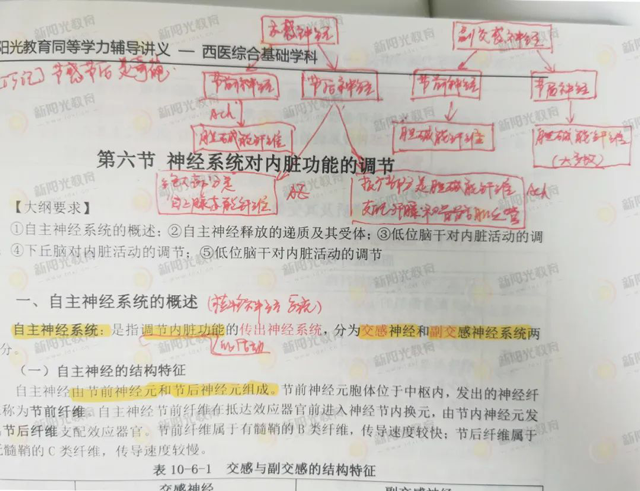 阳光教育同等学力辅导讲义 — 西医综合基础学科
交感神经
副交感神经
节前神经
节后神经
节前神经
节后神经
Ach
胆碱能纤维
胆碱能纤维
胆碱能纤维
(大多数)
第六节 神经系统对内脏功能的调节
绝大部分是
肾上腺素能纤维
极少部分是胆碱能纤维
Ach
【大纲要求】
①自主神经系统的概述；②自主神经释放的递质及其受体；③低位脑干对内脏活动的调
④下丘脑对内脏活动的调节；⑤低位脑干对内脏活动的调节
一、自主神经系统的概述 (植物神经系统)
自主神经系统：是指调节内脏功能的传出神经系统，分为交感神经和副交感神经系统两
分。
的活动
（一）自主神经的结构特征
自主神经由节前神经元和节后神经元组成。节前神经元胞体位于中枢内，发出的神经纤
称为节前纤维。自主神经节前纤维在抵达效应器官前进入神经节内换元，由节内神经元发
节后纤维支配效应器官。节前纤维属于有髓鞘的 B 类纤维，传导速度较快；节后纤维属于
无髓鞘的 C 类纤维，传导速度较慢。
表 10-6-1 交感与副交感的结构特征
交感神经
副交感神经
新阳光教育